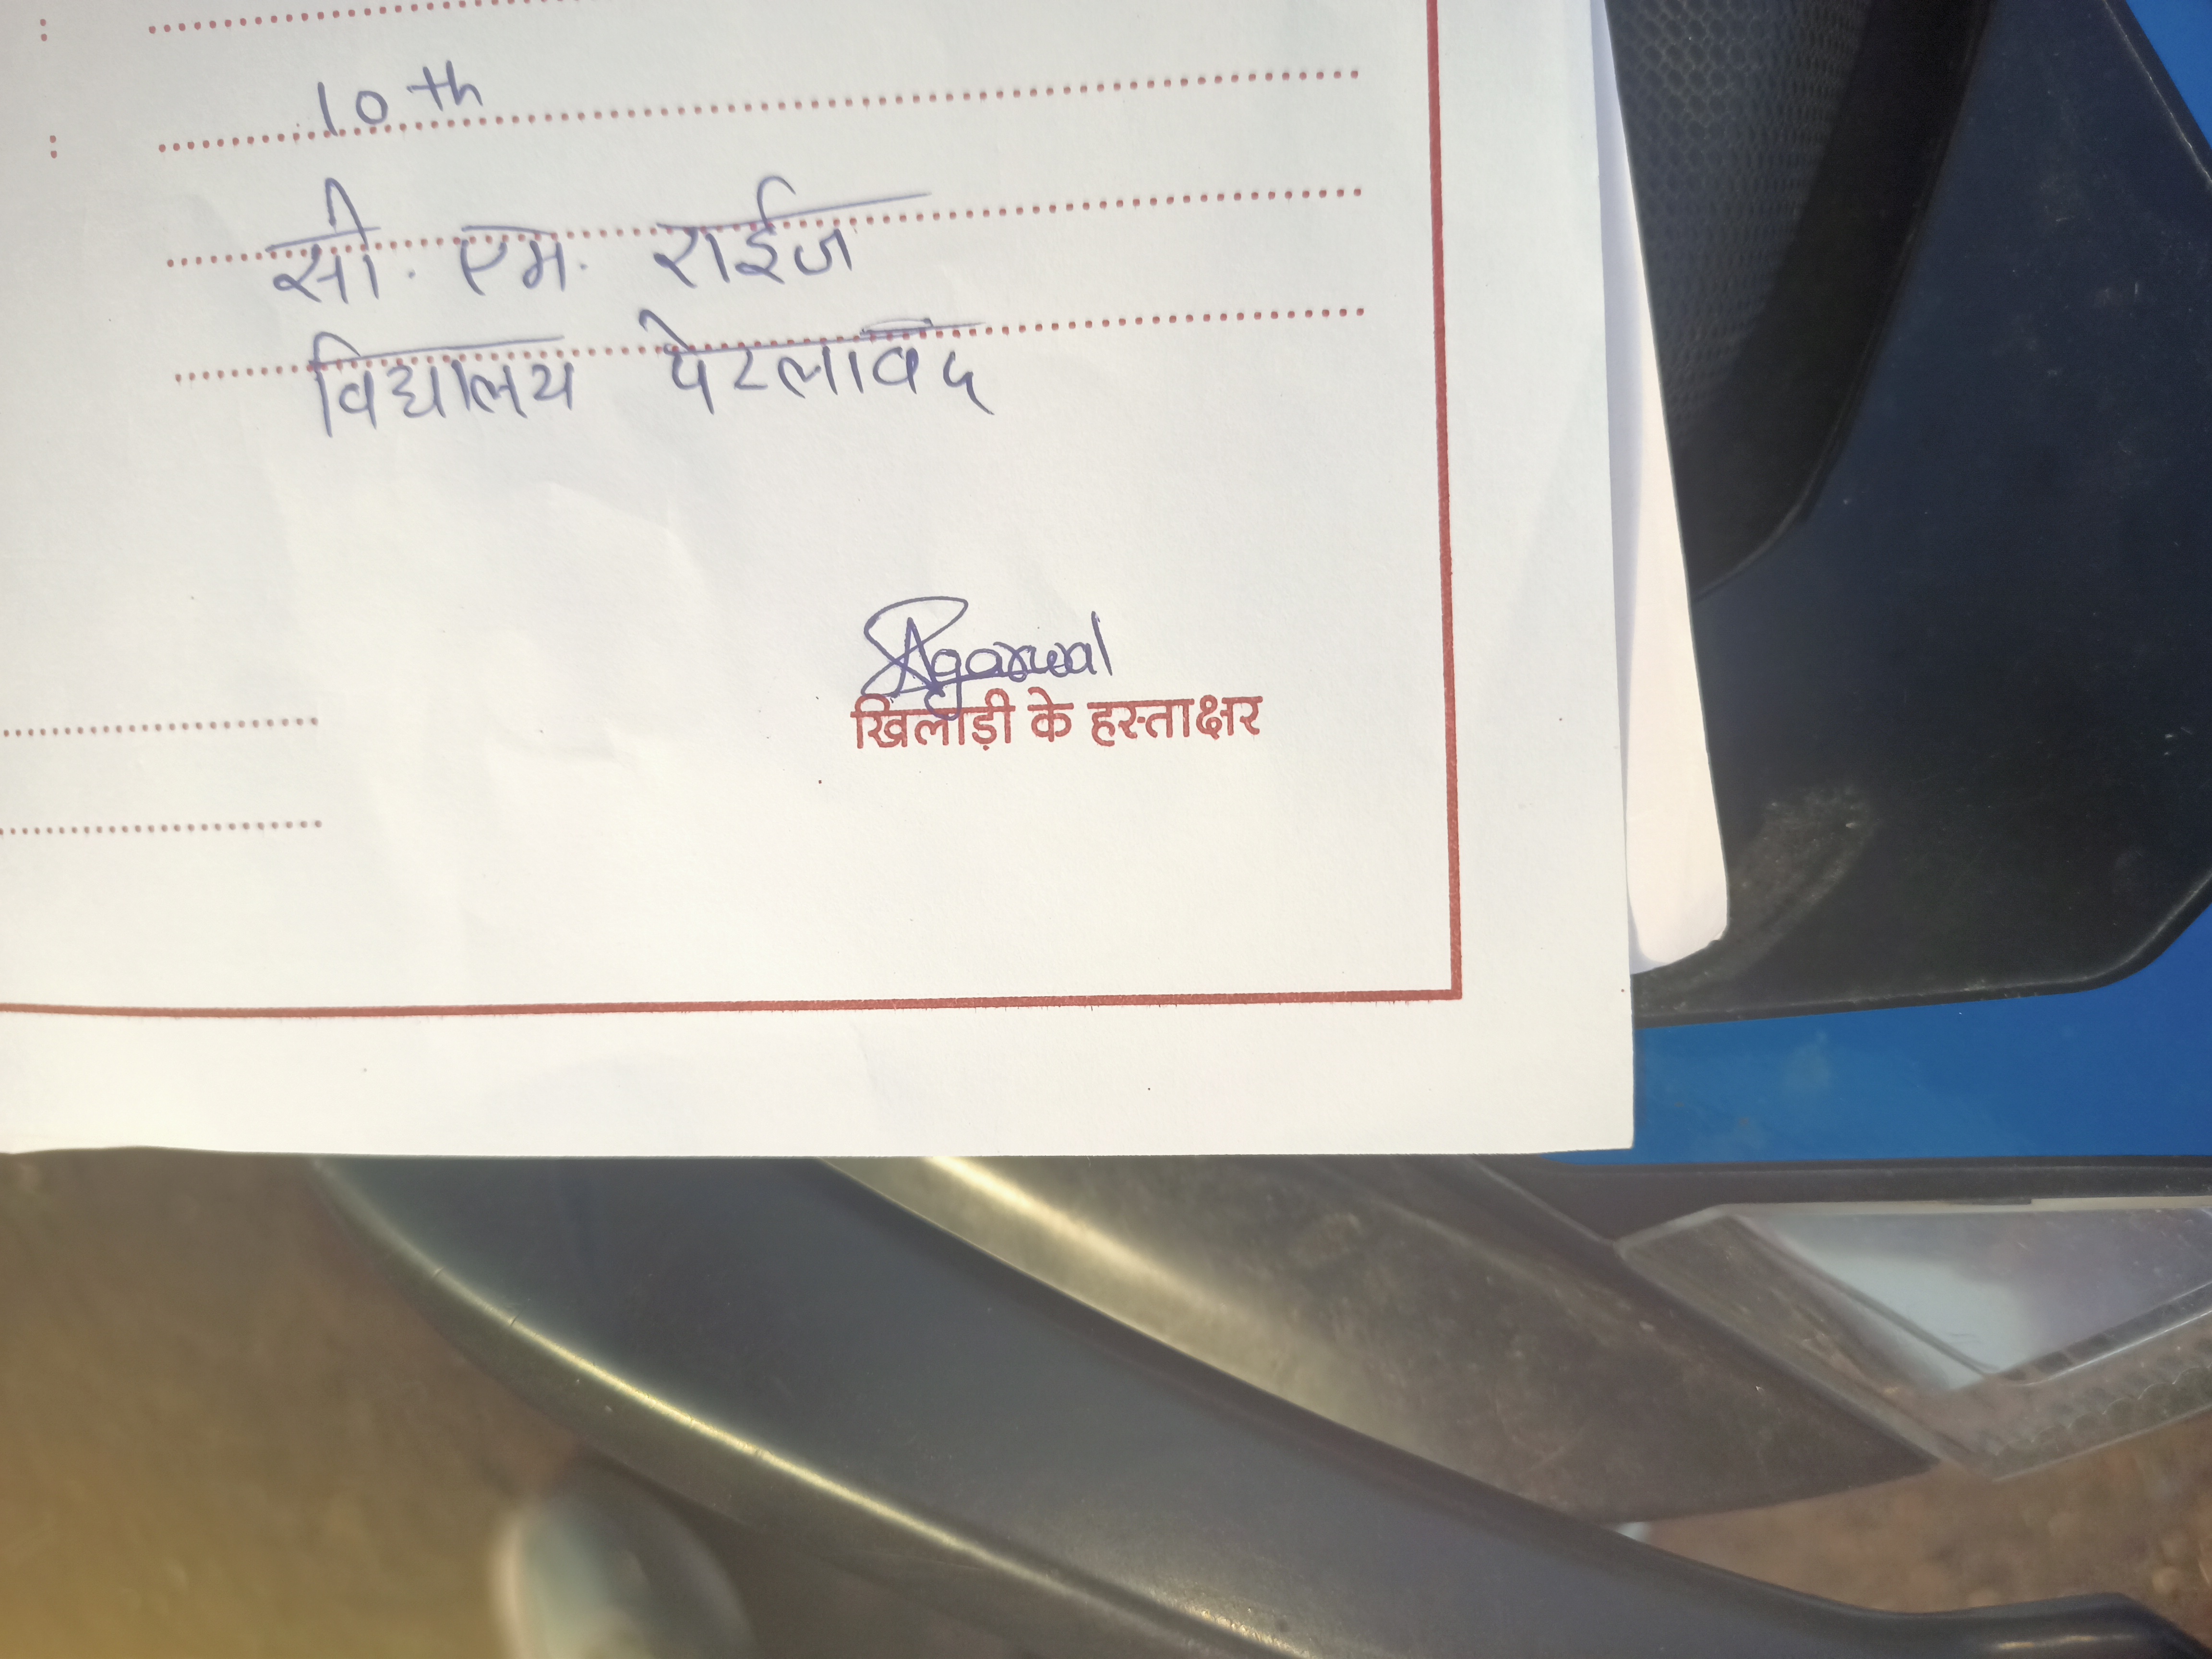 : 10th
सी. एम. राईज
विद्यालय पेटलावद
SAgarwal
खिलाड़ी के हस्ताक्षर